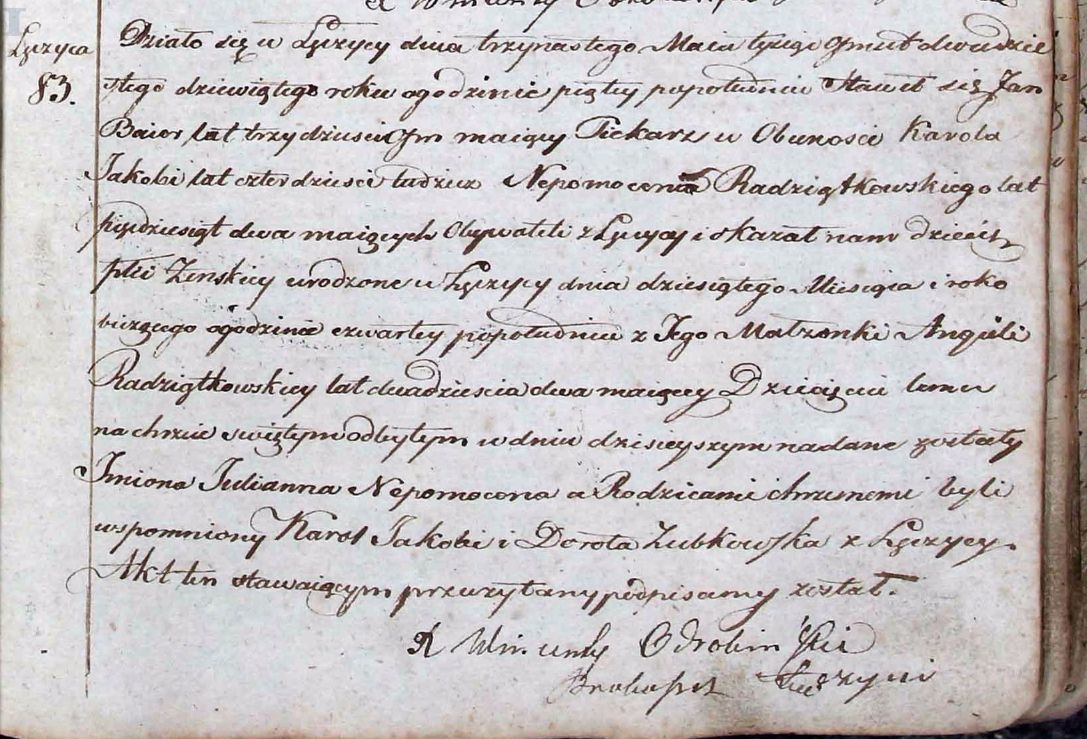 Łęczyca
83.
Działo się w Łęczycy dnia trzynastego Maia tysiąc Ośmset dwudzie
stego dziewiątego roku o godzinie piątey popołudniu Stawił się Jan
Baier lat trzydzieści Ośm maiący Piekarz w Obecności Karola
Jakobi lat czterdzieści tudzież Nepomocena Radziątkowskiego lat
pięćdziesiąt dwa maiących Obywateli z Łęczycy i okazał nam dziecię
płci Zenskiey urodzone w Łęczycy dnia dziesiątego Miesiąca i roku
bieżącego o godzinie czwartey popołudniu z Jego Małżonki Angeli
Radziątkowskiey lat dwadzieścia dwa maiącey Dziecięciu temu
na chrzcie świętym odbytym w dniu dzisieyszym nadane zostały
Imiona Julianna Nepomocena a Rodzicami chrzesnemi byli
wspomniony Karol Jakobi i Dorota Zubkowska z Łęczycy.
Akt ten stawaiącym przeczytany podpisany został.
X Wincenty Odrobiński
Proboszcz Łęczycki